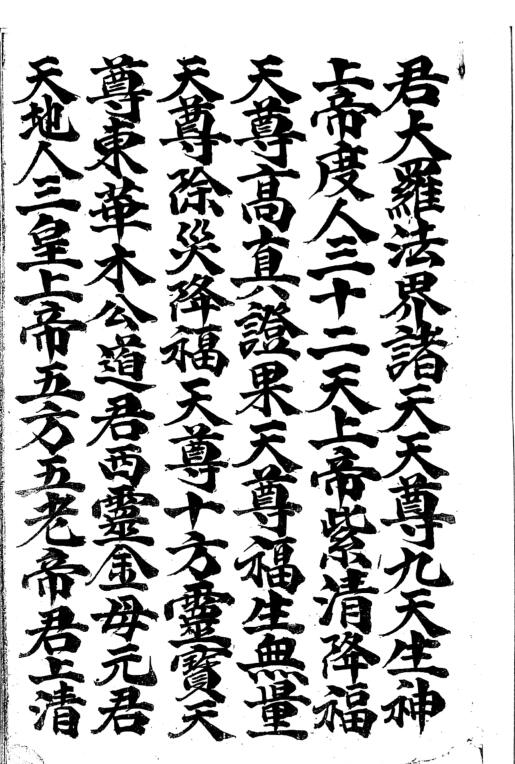 君大羅法界諸天天尊九天生神
上帝度人三十二天上帝紫清降福
天尊高真證果天尊福生無量
天尊除災降福天尊十方靈寶天
尊東華木公道君西靈金母元君
天地人三皇上帝五方五老帝君上清